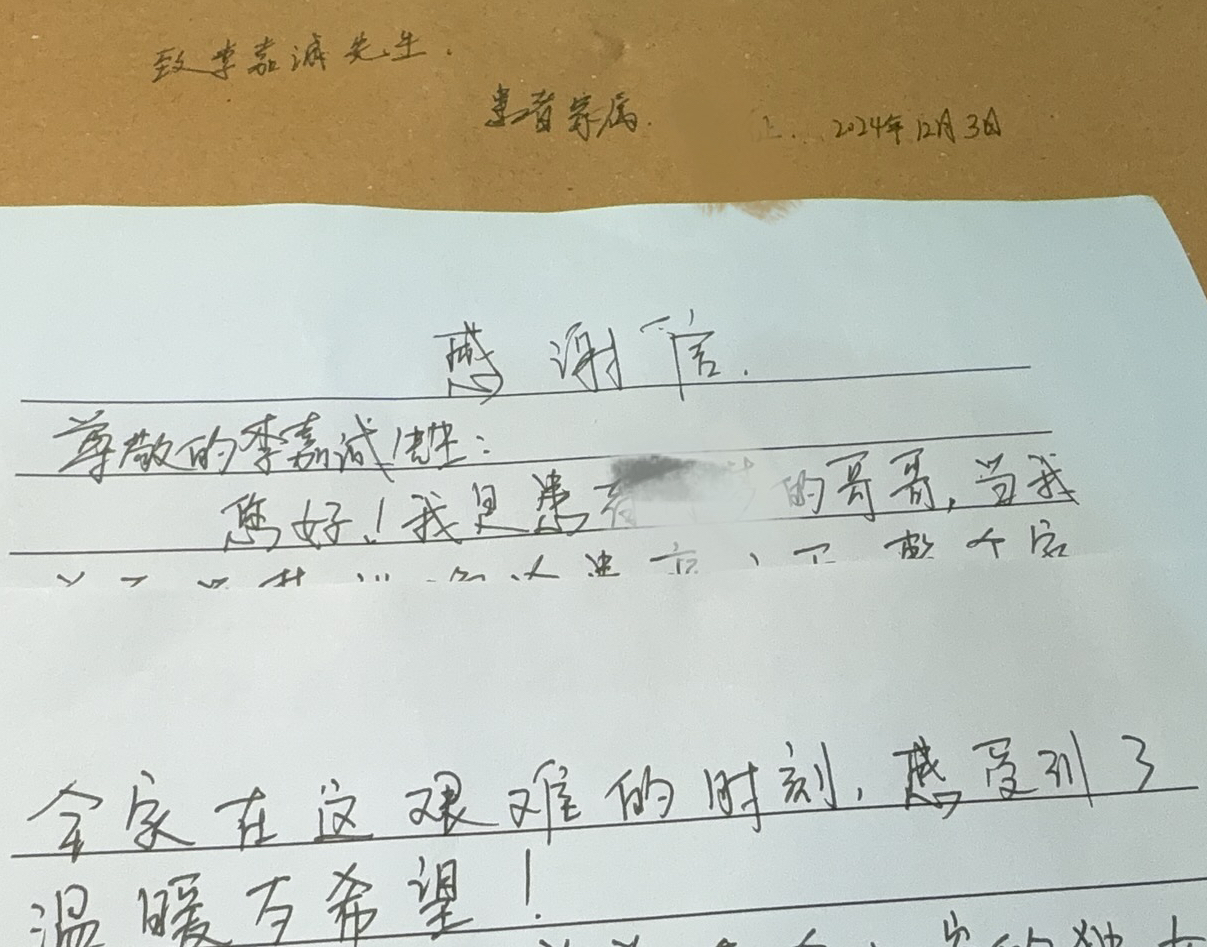 致李嘉诚先生.
患者家属. 2024年12月3日
感谢信.
尊敬的李嘉诚先生:
您好!我是患者 的哥哥,当我
全家在这艰难的时刻,感受到了
温暖与希望!